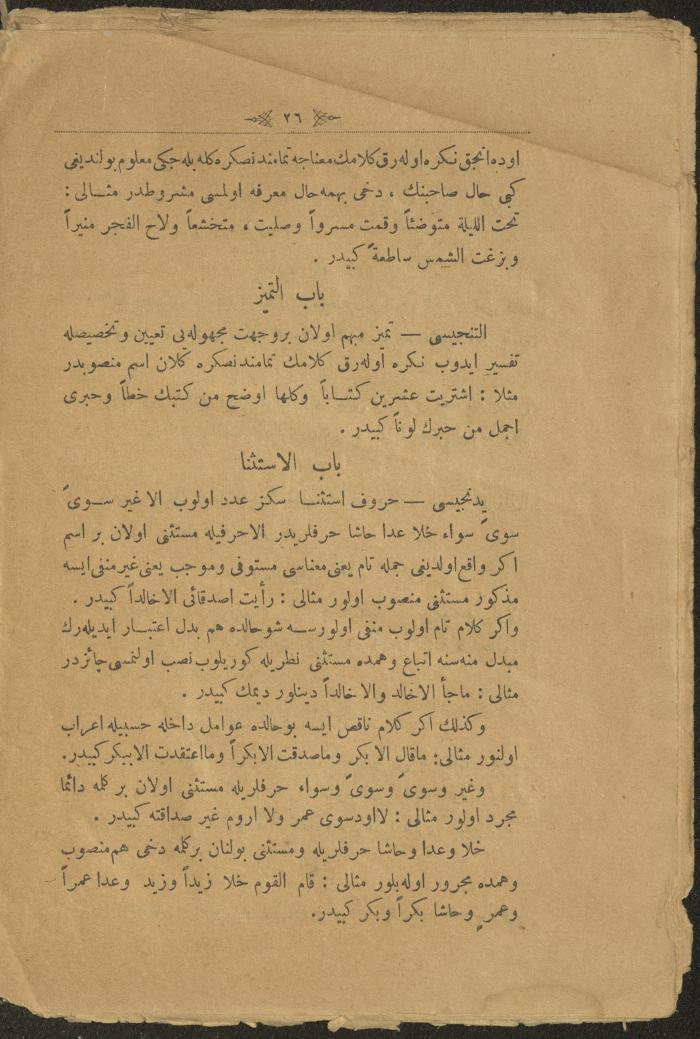 ٢٦
اوده انجق نكره اوله رق كلامك معناجه تمامندنصكره كله بله جكى معلوم بولنديغى
كبى حال صاحبنك ، دخى بهمه حال معرفه اولمسى مشروطدر مثالى :
نمت الليلة متوضئاً وقمت مسروراً وصليت ، متخشعاً ولاح الفجر منيراً
وبزغت الشمس ساطعةً كبيدر .
باب التميز
التنجيسى — تميز مبهم اولان بروجهت مجهوله يى تعيين وتخصيصله
تفسير ايدوب نكره اوله رق كلامك تمامندنصكره كلان اسم منصوبدر
مثلا : اشتريت عشرين كتاباً وكلها اوضح من كتبك خطاً وحبرى
اجمل من حبرك لوناً كبيدر .
باب الاستثنا
يدنجيسى — حروف استثنا سكز عدد اولوب الا غير سوىً
سوىً سواء خلا عدا حاشا حرفلريدر الاحرفيله مستثنى اولان بر اسم
اكر واقع اولديغى جمله تام يعنى معناسى مستوفى وموجب يعنى غير منفى ايسه
مذكور مستثنى منصوب اولور مثالى : رأيت اصدقائى الاخالداً كبيدر .
واكر كلام تام اولوب منفى اولورسه شوحالده هم بدل اعتبار ايديله رك
مبدل منه سنه اتباع وهمده مستثنى نظريله كوريلوب نصب اولنمسى جائزدر
مثالى : ماجأ الاخالد والا خالداً دينلور ديمك كبيدر .
وكذلك اكر كلام ناقص ايسه بوحالده عوامل داخله حسبيله اعراب
اولنور مثالى: ماقال الا بكر وماصدقت الابكراً ومااعتقدت الاببكر كبيدر.
وغير وسوىً وسوىً وسواء حرفلريله مستثنى اولان بر كله دائما
مجرد اولور مثالى : لااودسوى عمر ولا اروم غير صداقته كبيدر .
خلا وعدا وحاشا حرفلريله ومستثنى بولنان بركله دخى هم منصوب
وهمده مجرور اوله بلور مثالى : قام القوم خلا زيداً وزيد وعدا عمراً
وعمرٍ وحاشا بكراً وبكر كبيدر.